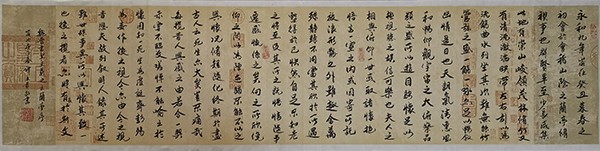 永和九年歲在癸丑暮春之
初會於會稽山陰之蘭亭脩
禊事也群賢畢至少長咸集
此地有崇山峻領茂林脩竹又
有清流激湍映帶左右引以為
流觴曲水列坐其次雖無絲竹
管弦之盛一觴一詠亦足以暢敘
幽情是日也天朗氣清惠風
和暢仰觀宇宙之大俯察品
類之盛所以遊目騁懷足以
極視聽之娛信可樂也夫人之
相與俯仰一世或取諸懷抱
悟言一室之內或因寄所託
放浪形骸之外雖趣舍萬殊
靜躁不同當其欣於所遇
暫得於己快然自足不知老
之將至及其所之既惓情隨事
遷感慨係之矣向之所欣俛
仰之間以為陳跡猶不能不以之
興懷況脩短隨化終期於盡
古人云死生亦大矣豈不痛哉
每攬昔人興感之由若合一契
未嘗不臨文嗟悼不能喻之於
懷固知一死生為虛誕齊彭殤
為妄作後之視今亦由今之視
昔悲夫故列敘時人錄其所述
雖世殊事異所以興懷其致一
也後之攬者亦將有感於斯文